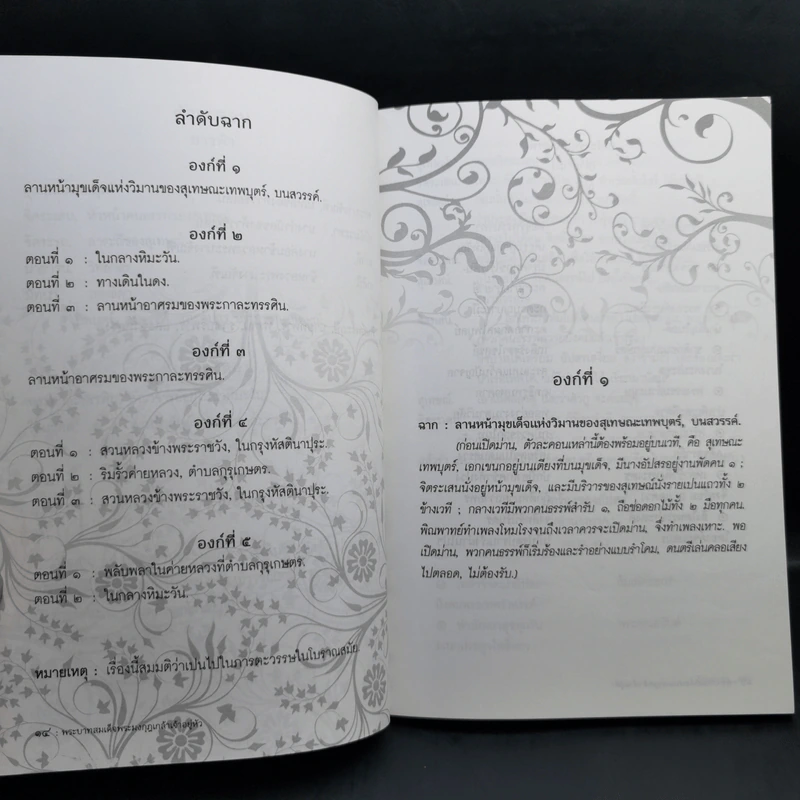 ลำดับฉาก
องก์ที่ ๑
ลานหน้ามุขเด็จแห่งวิมานของสุเทษณะเทพบุตร์, บนสวรรค์.
องก์ที่ ๒
ตอนที่ ๑ : ในกลางหิมะวัน.
ตอนที่ ๒ : ทางเดินในดง.
ตอนที่ ๓ : ลานหน้าอาศรมของพระกาละทรรศิน.
องก์ที่ ๓
ลานหน้าอาศรมของพระกาละทรรศิน.
องก์ที่ ๔
ตอนที่ ๑ : สวนหลวงข้างพระราชวัง, ในกรุงหัสตินาปุระ.
ตอนที่ ๒ : ริมรั้วค่ายหลวง, ตำบลกุรุเกษตร.
ตอนที่ ๓ : สวนหลวงข้างพระราชวัง, ในกรุงหัสตินาปุระ.
องก์ที่ ๕
ตอนที่ ๑ : พลับพลาในค่ายหลวงที่ตำบลกุรุเกษตร.
ตอนที่ ๒ : ในกลางหิมะวัน.
หมายเหตุ : เรื่องนี้สมมติว่าเป็นไปในภารตะวรรษในโบราณสมัย.
๑๔ : พระบาทสมเด็จพระมงกุฎเกล้าเจ้าอยู่หัว
องก์ที่ ๑
ฉาก : ลานหน้ามุขเด็จแห่งวิมานของสุเทษณะเทพบุตร์, บนสวรรค์.
(ก่อนเปิดม่าน, ตัวละคอนเหล่านี้ต้องพร้อมอยู่บนเวที. คือ สุเทษณะ
เทพบุตร์, เอกเขนกอยู่บนเตียงที่บนมุขเด็จ, มีนางอัปสรอยู่งานพัดคน ๑ ;
จิตระเสนนั่งอยู่หน้ามุขเด็จ, และมีบริวารของสุเทษณ์นั่งรายเปนแถวทั้ง ๒
ข้างเวที ; กลางเวทีมีพวกคนธรรพ์สำรับ ๑, ถือช่อดอกไม้ทั้ง ๒ มือทุกคน.
พิณพาทย์ทำเพลงโหมโรงจนถึงเวลาควรจะเปิดม่าน, จึ่งทำเพลงเหาะ. พอ
เปิดม่าน, พวกคนธรรพ์ก็เริ่มร้องและรำอย่างแบบรำโคม, ดนตรีเล่นคลอเสียง
ไปตลอด, ไม่ต้องรับ.)